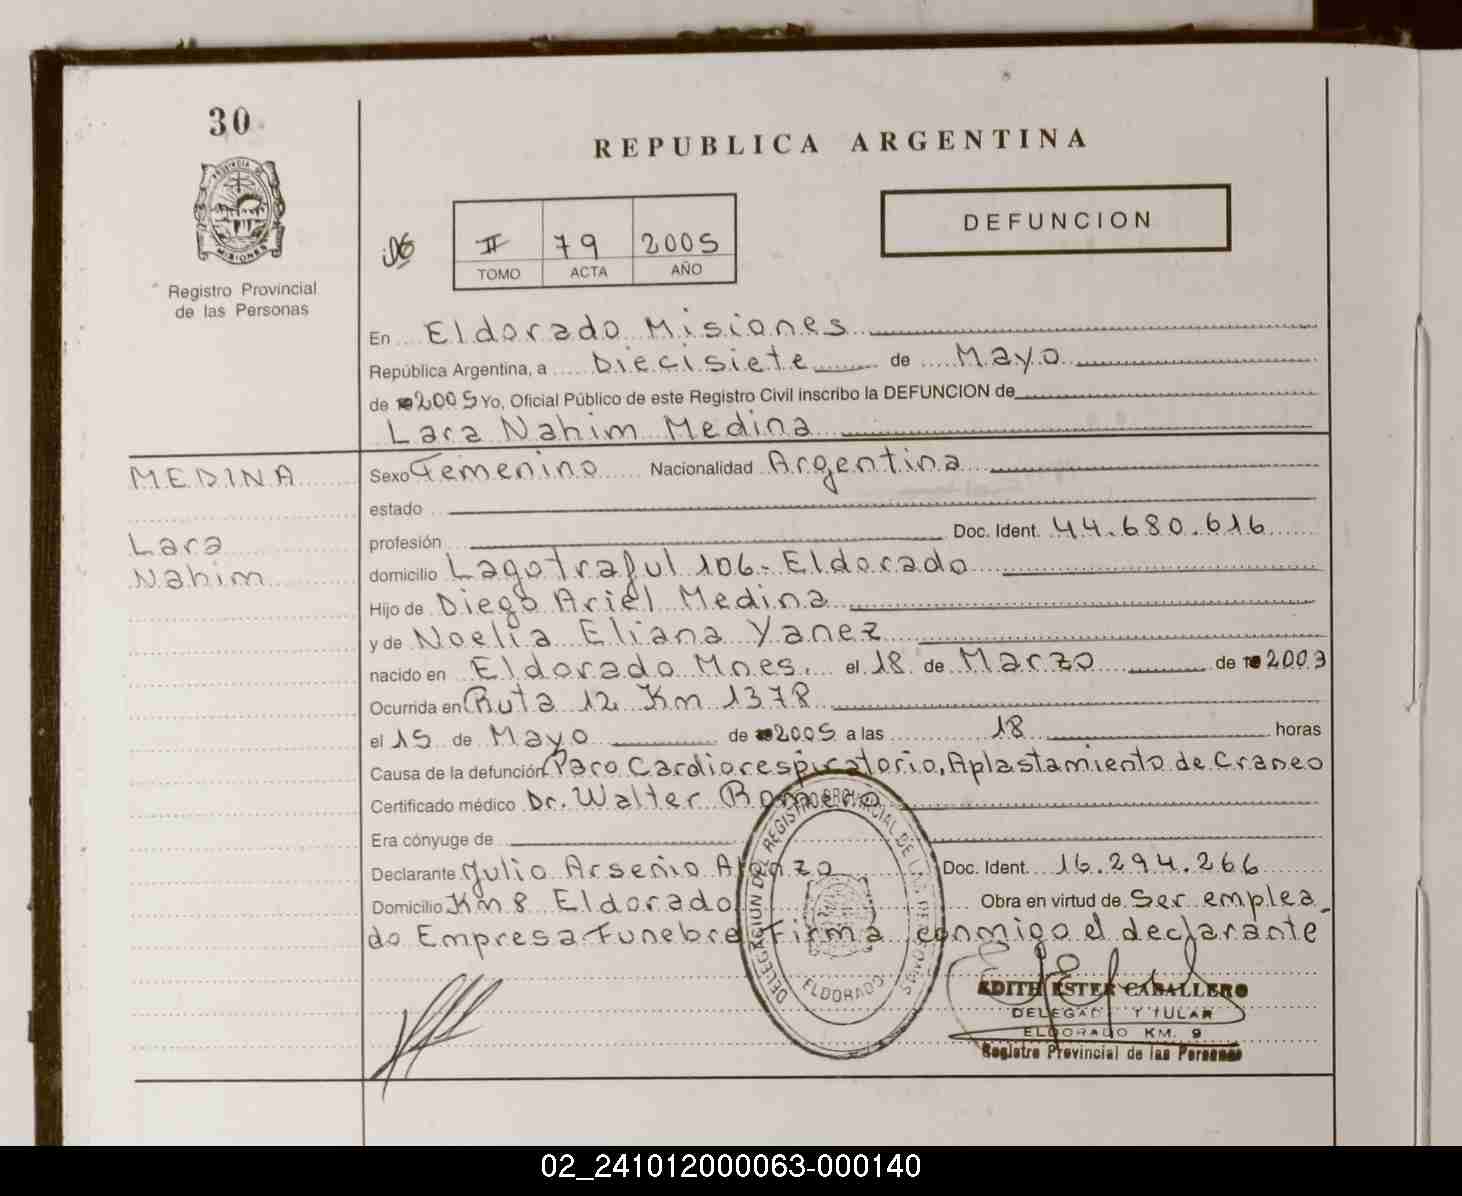 30
REPUBLICA ARGENTINA
DEFUNCION
II 79 2005
TOMO ACTA AÑO
PROVINCIA DE
MISIONES
Registro Provincial
de las Personas
En Eldorado Misiones
República Argentina, a Diecisiete de Mayo
de 2005 Yo, Oficial Público de este Registro Civil inscribo la DEFUNCION de
Lara Nahim Medina
MEDINA
Lara
Nahim
Sexo Femenino Nacionalidad Argentina
estado
profesión Doc. Ident. 44.680.616
domicilio Lago traful 106- Eldorado
Hijo de Diego Ariel Medina
y de Noelia Eliana Yanez
nacido en Eldorado Mnes. el 18 de Marzo de 2003
Ocurrida en Ruta 12 Km 1378
el 15 de Mayo de 2005 a las 18 horas
Causa de la defunción Paro Cardiorespiratorio, Aplastamiento de Craneo
Certificado médico Dr. Walter Romero
Era cónyuge de
Declarante Julio Arsenio Doc. Ident. 16.294.266
Domicilio Km 8 Eldorado Obra en virtud de Ser emplea-
do Empresa Funebre Firma conmigo el declarante
DELEGACION DEL REGISTRO PROVINCIAL DE LAS PERSONAS
ELDORADO
EDITH ESTER CABALLERO
DELEGADA TITULAR
ELDORADO KM. 9
Registro Provincial de las Personas
02_241012000063-000140